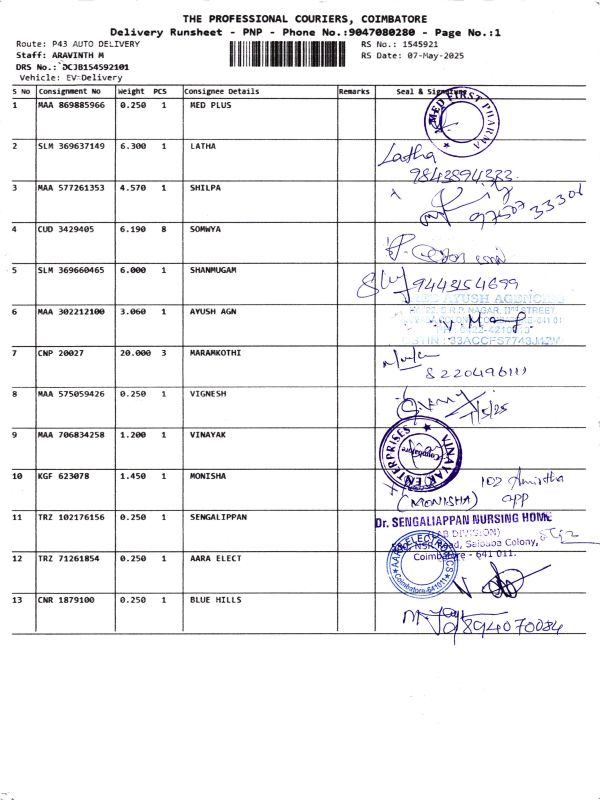 THE PROFESSIONAL COURIERS, COIMBATORE
Delivery Runsheet - PNP - Phone No.:9047080280 - Page No.:1
Route: P43 AUTO DELIVERY RS No.: 1545921
Staff: ARAVINTH M RS Date: 07-May-2025
DRS No.: DCJB154592101
Vehicle: EV Delivery
S No Consignment No Weight PCS Consignee Details Remarks Seal & Signature
1 MAA 869885966 0.250 1 MED PLUS
MED FIRST PHARMA
2 SLM 369637149 6.300 1 LATHA
Latha
9843894323
3 MAA 577261353 4.570 1 SHILPA
9750733301
4 CUD 3429405 6.190 8 SOMWYA
5 SLM 369660465 6.000 1 SHANMUGAM
9443154699
6 MAA 302212100 3.060 1 AYUSH AGN
AYUSH AGENCIES
7 CNP 20027 20.000 3 MARAMKOTHI
8220496111
8 MAA 575059426 0.250 1 VIGNESH
7/5/25
9 MAA 706834258 1.200 1 VINAYAK
VINAYAK ENTERPRISES
Coimbatore
10 KGF 623078 1.450 1 MONISHA
(MONISHA) 102 Amirtha
app
11 TRZ 102176156 0.250 1 SENGALIPPAN
Dr. SENGALIAPPAN NURSING HOME
(LAB DIVISION)
NSR Road, Saibaba Colony,
Coimbatore - 641 011.
12 TRZ 71261854 0.250 1 AARA ELECT
AARA ELECTRONICS
Coimbatore-641011
13 CNR 1879100 0.250 1 BLUE HILLS
8894070084